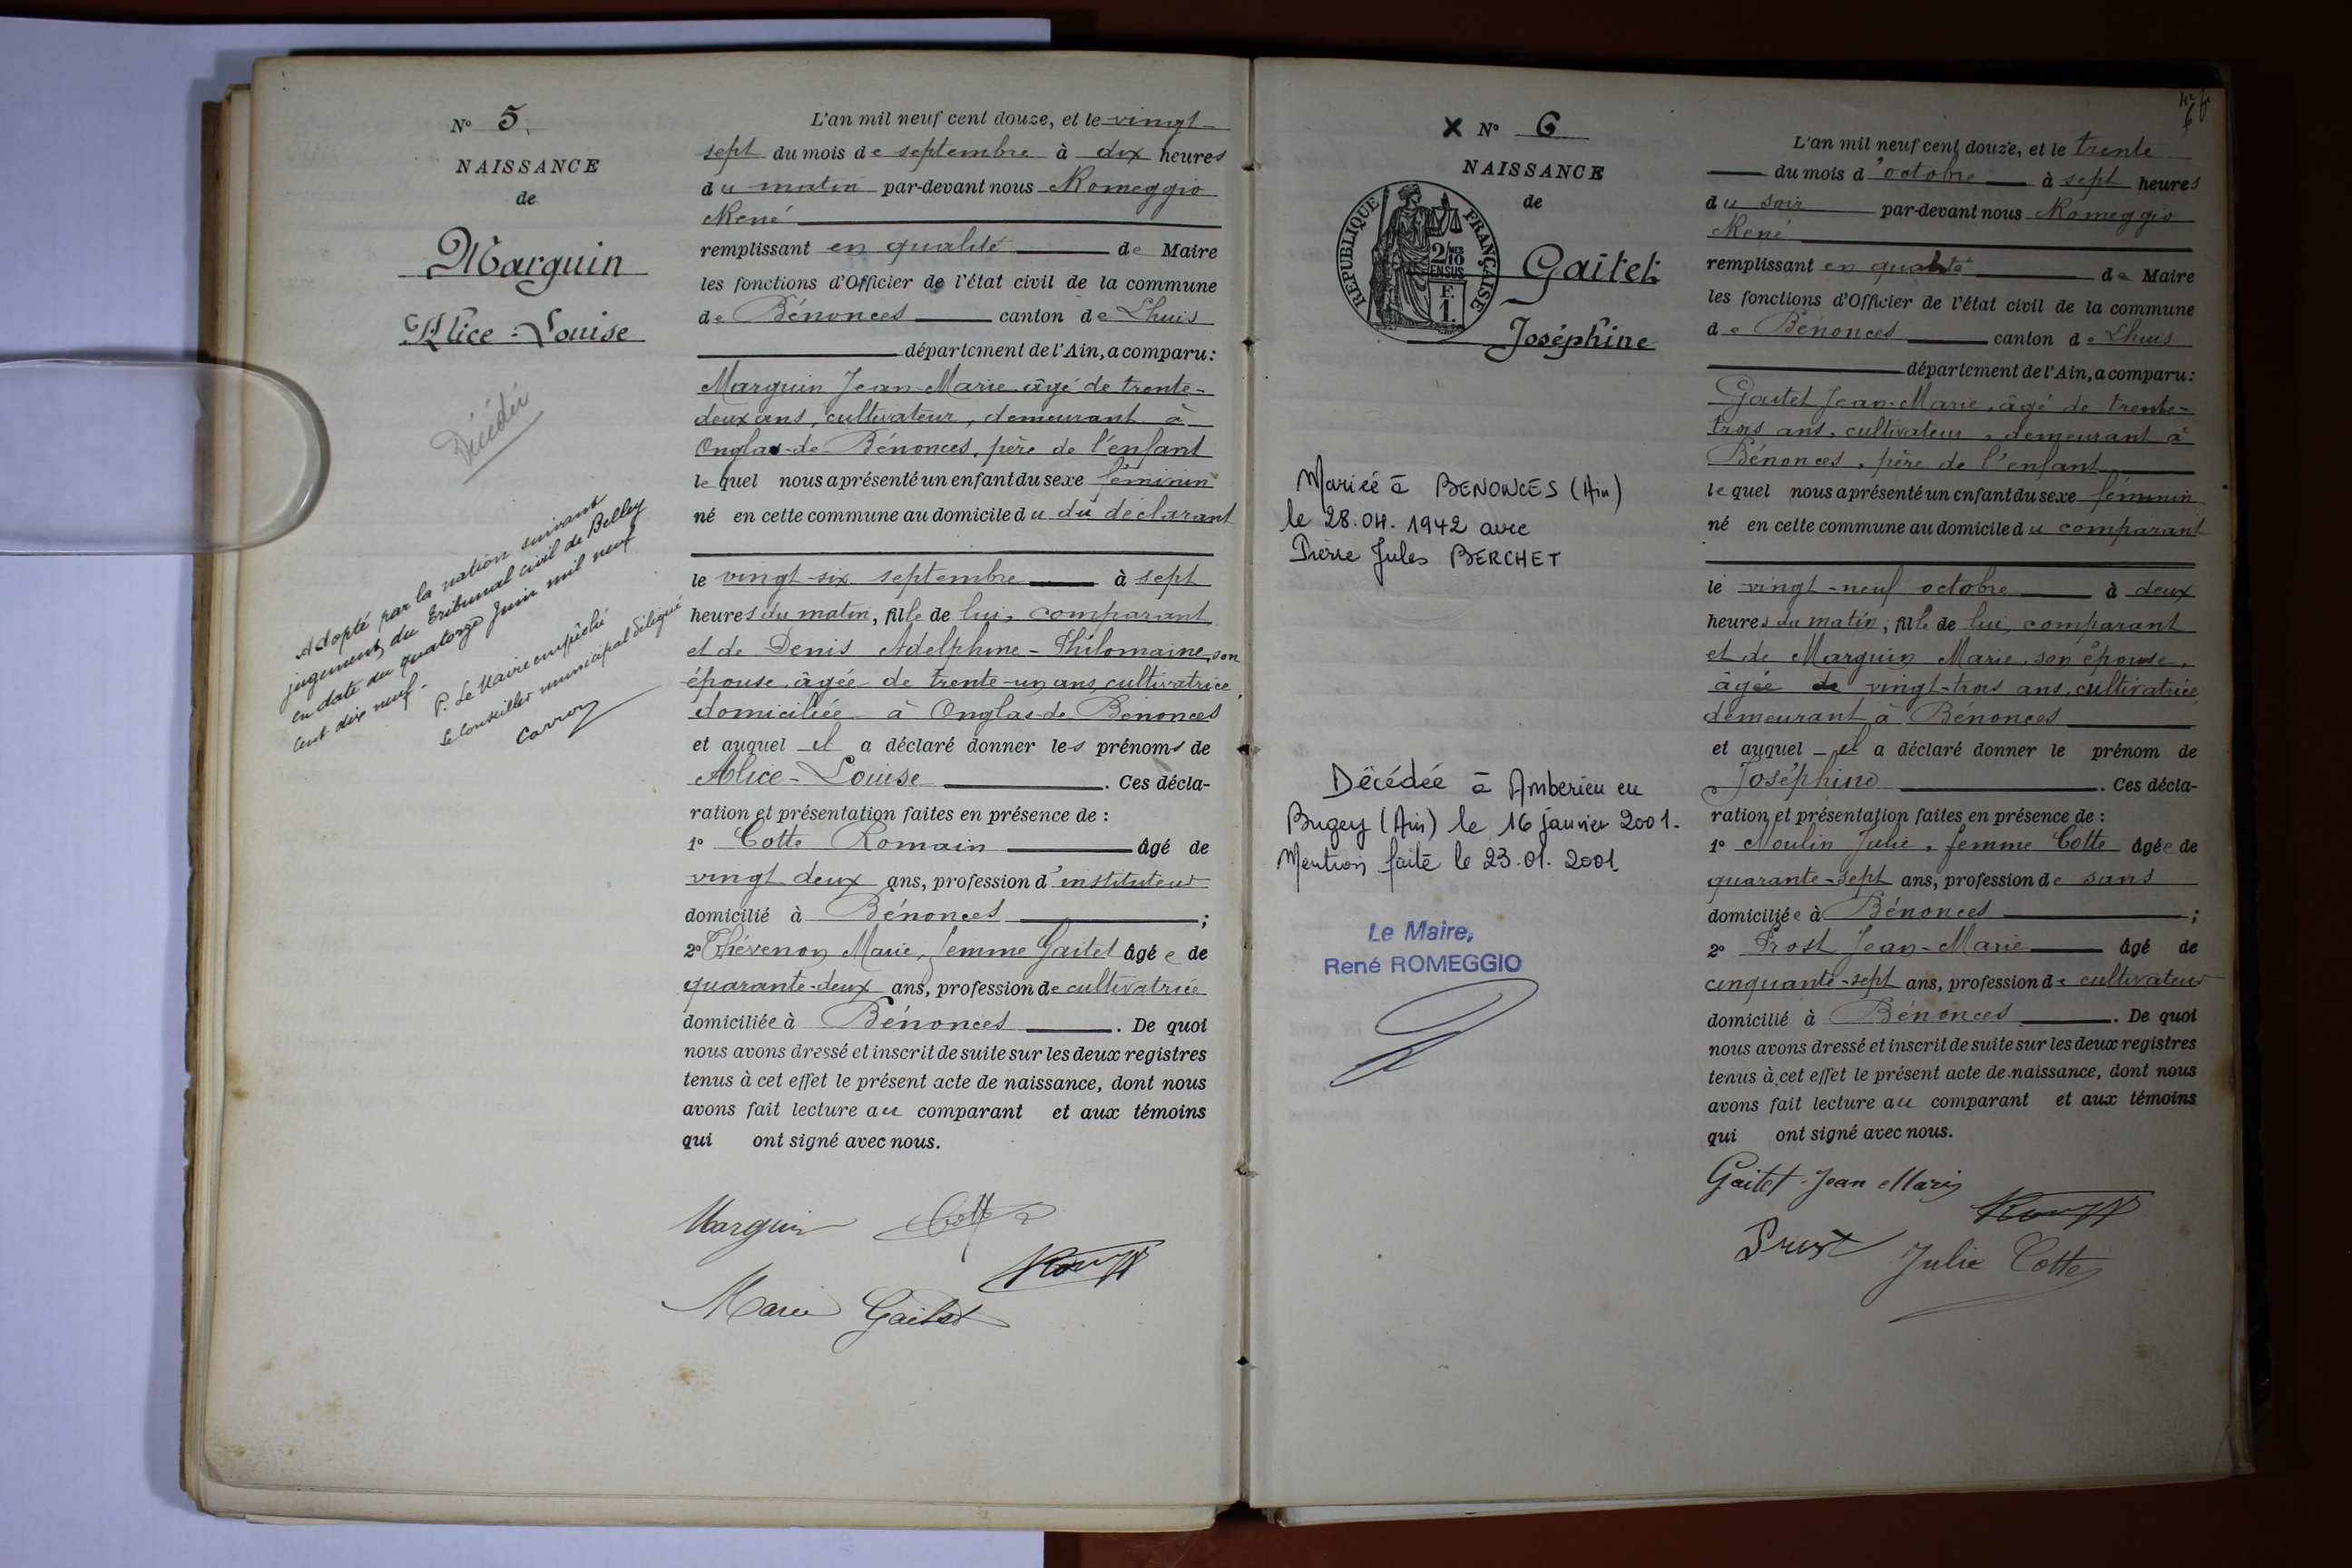 N° 5.
NAISSANCE
de
Marguin
Alice-Louise
Décédée
Adopté par la nation suivant
jugement du Tribunal civil de Belley
en date du quatorze Juin mil neuf
cent dix neuf.
P. Le Maire empêché
Le Conseiller municipal délégué
L'an mil neuf cent douze, et le vingt-
sept du mois de septembre à dix heures
du matin par-devant nous Romeggio
René
remplissant en qualité de Maire
les fonctions d'Officier de l'état civil de la commune
de Bénonces canton de Lhuis
département de l'Ain, a comparu :
Marguin Jean-Marie âgé de trente-
deux ans, cultivateur, demeurant à
Onglas-de Bénonces, père de l'enfant
lequel nous a présenté un enfant du sexe féminin
né en cette commune au domicile du du déclarant
le vingt-six septembre à sept
heures du matin, fille de lui, comparant
et de Denis Adelphine-Philomaine, son
épouse âgée de trente-un ans, cultivatrice
domiciliée à Onglas-de Bénonces
et auquel il a déclaré donner les prénoms de
Alice-Louise. Ces décla-
ration et présentation faites en présence de :
1° Cotte Romain âgé de
vingt deux ans, profession d'instituteur
domicilié à Bénonces ;
2° Thévenon Marie, femme Gaitet âgée de
quarante-deux ans, profession de cultivatrice
domiciliée à Bénonces. De quoi
nous avons dressé et inscrit de suite sur les deux registres
tenus à cet effet le présent acte de naissance, dont nous
avons fait lecture au comparant et aux témoins
qui ont signé avec nous.
Marguin Cotte
Marie Gaitet
X N° 6
NAISSANCE
de
REPUBLIQUE FRANÇAISE
2/10
EN SUS
F.
1.
Gaitet
Joséphine
Mariée à BENONCES (Ain)
le 28.04.1942 avec
Pierre Jules BERCHET
Décédée à Amberieu en
Bugey (Ain) le 16 janvier 2001.
Mention faite le 23.01.2001.
Le Maire,
René ROMEGGIO
L'an mil neuf cent douze, et le trente
du mois d'octobre à sept heures
du soir par-devant nous Romeggio
René
remplissant en qualité de Maire
les fonctions d'Officier de l'état civil de la commune
de Bénonces canton de Lhuis
département de l'Ain, a comparu :
Gaitet Jean-Marie, âgé de trente-
trois ans, cultivateur, demeurant à
Bénonces, père de l'enfant
lequel nous a présenté un enfant du sexe féminin
né en cette commune au domicile du comparant
le vingt-neuf octobre à deux
heures du matin, fille de lui, comparant
et de Marguin Marie son épouse,
âgée de vingt-trois ans, cultivatrice
demeurant à Bénonces
et auquel il a déclaré donner le prénom de
Joséphine. Ces décla-
ration et présentation faites en présence de :
1° Moulin Julie, femme Cotte âgée de
quarante-sept ans, profession de sans
domiciliée à Bénonces ;
2° Prost Jean-Marie âgé de
cinquante-sept ans, profession de cultivateur
domicilié à Bénonces. De quoi
nous avons dressé et inscrit de suite sur les deux registres
tenus à cet effet le présent acte de naissance, dont nous
avons fait lecture au comparant et aux témoins
qui ont signé avec nous.
Gaitet Jean Marie
Prost Julie Cotte